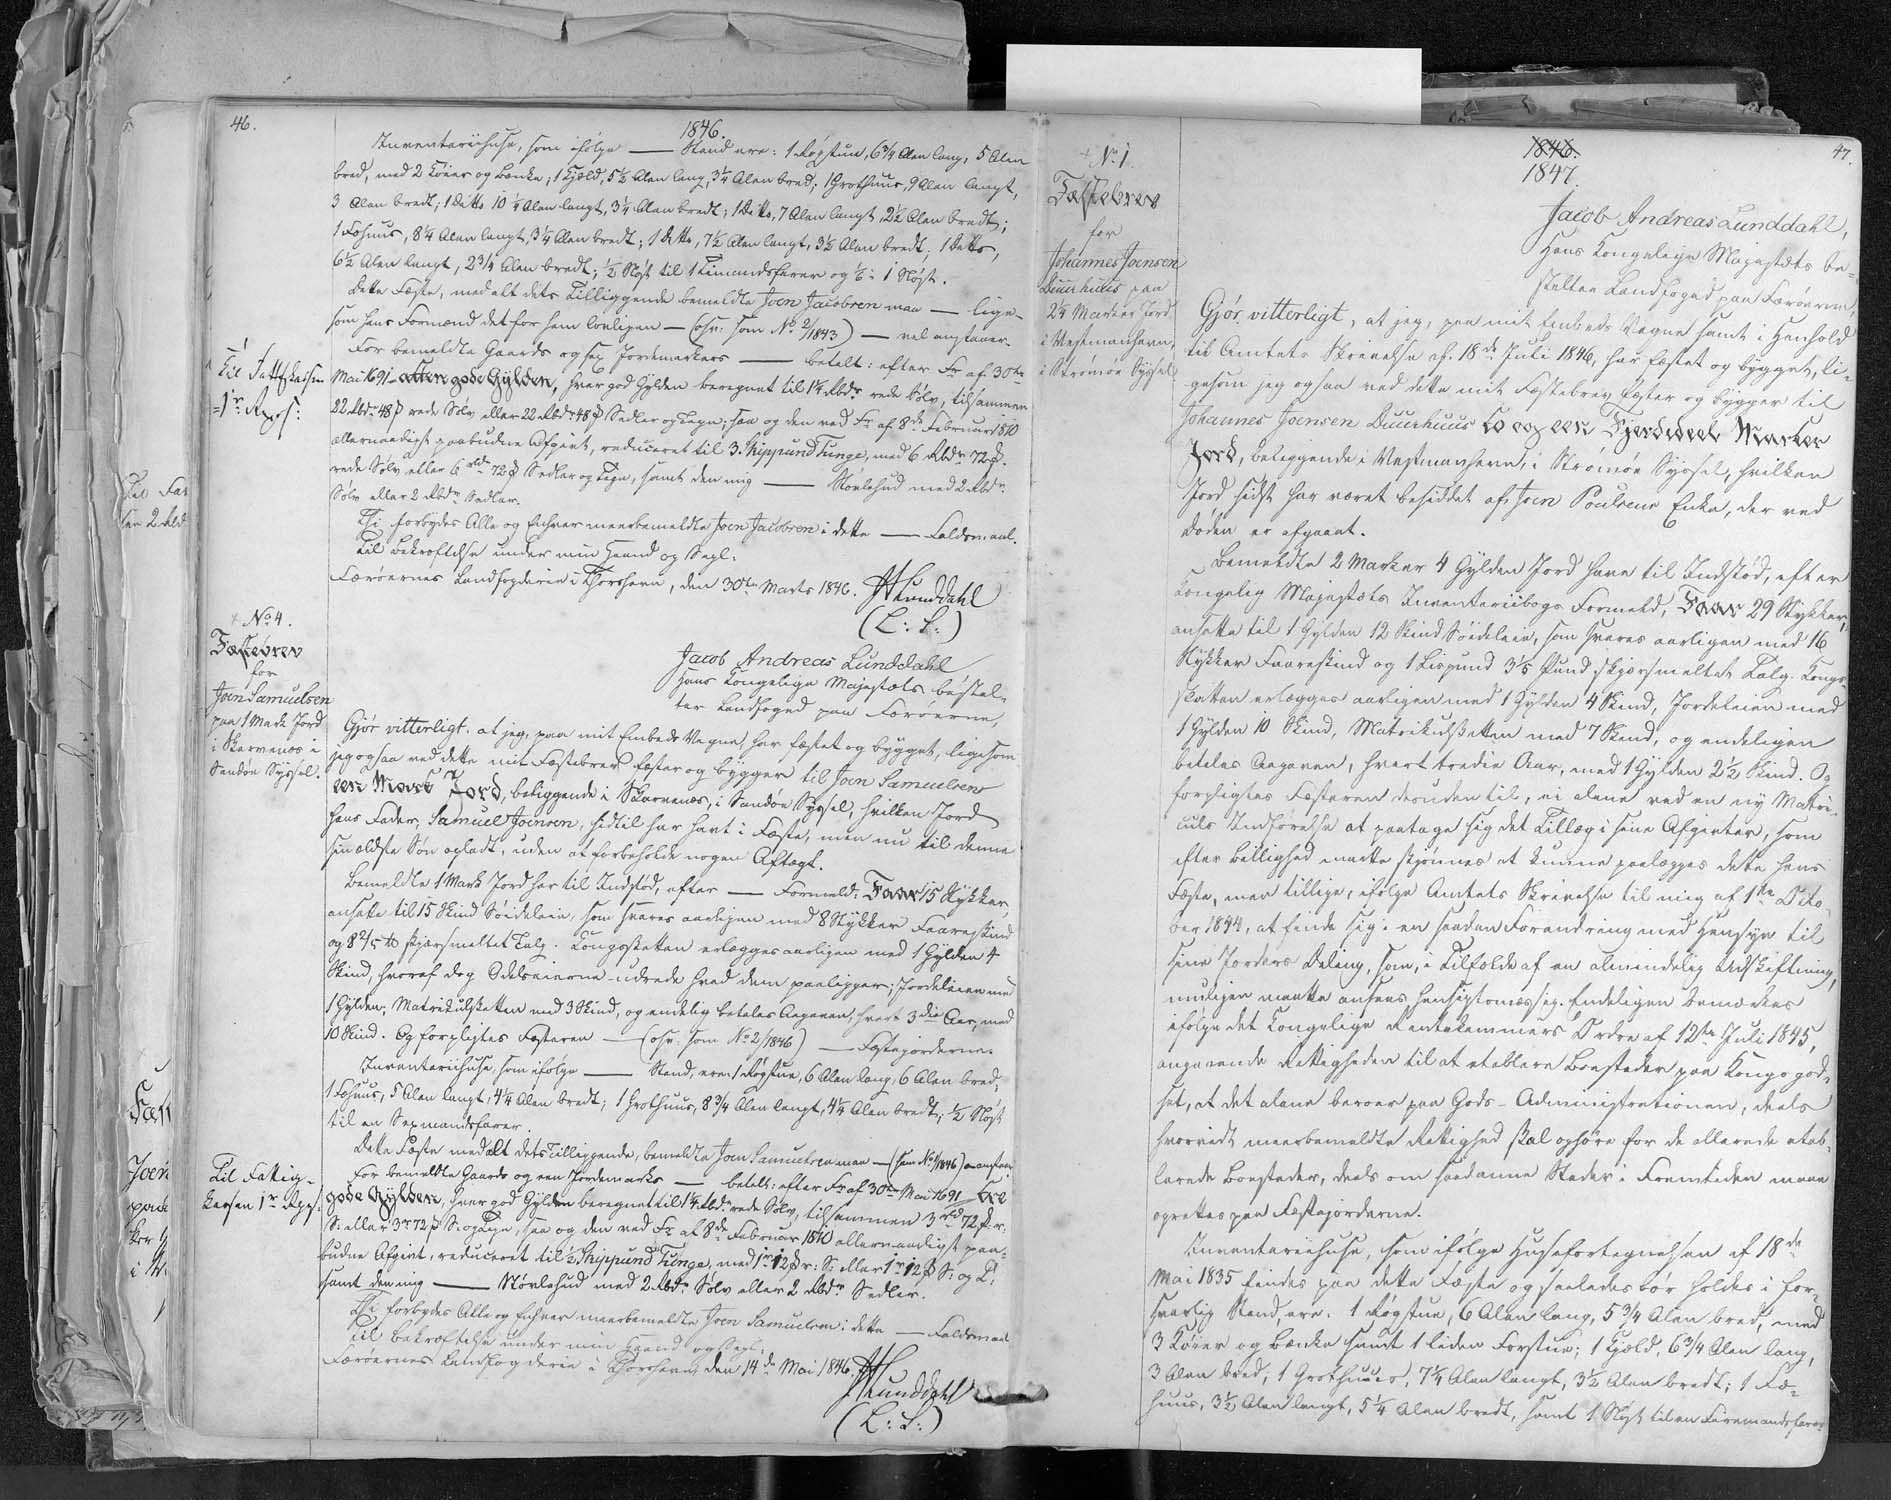 46.
1846.
Inventariihuse, som ifølge — Stand ere: 1 Røgstue, 6 3/4 Alen lang, 5 Alen
bred, med 2 Køier og Bænke; 1 Kjæld, 5 1/2 Alen lang, 3 1/4 Alen bred; 1 Grothuus, 9 Alen langt,
3 Alen bredt; 1 Ditto 10 1/4 Alen langt, 3 1/4 Alen bredt; 1 Ditto, 7 Alen langt, 2 1/2 Alen bredt;
1 Fæhuus, 8 1/4 Alen langt, 3 1/4 Alen bredt; 1 Ditto, 7 1/2 Alen langt, 3 1/2 Alen bredt; 1 Ditto,
6 1/2 Alen langt, 2 3/4 Alen bredt; 1/2 Nøst til 1 Timandsfarer og 1/6 i 1 Nøst.
Dette Fæste, med alt dets Tilliggende bemeldte Joen Jacobsen maa — lige-
som hans Formænd det før ham lovligen — (osv: som No 2/1843) — vel anstaaer.
For bemeldte Gaards og sex Jordemarkers — betalt: efter Fr af 30te
Mai 1691 - atten gode Gylden, hver god Gylden beregnet til 1 1/4 Rbdr rede Sølv, tilsammen
22 Rbdr 48 ß rede Sølv eller 22 Rbdr 48 ß Sedler og Tegn; saa og den ved Fr af 8de Februar 1810
allernaadigst paabudne Afgivt, reduceret til 3 Skippund Tunge, med 6 Rbdr 72 ß.
rede Sølv eller 6 rbdr 72 ß Sedler og Tegn, samt den mig — Støvlehud med 2 Rbdr
Sølv eller 2 Rbdr Sedler.
Thi forbydes Alle og Enhver meerbemeldte Joen Jacobsen i dette — Faldsmaal.
Til Bekræftelse under min Haand og Segl.
Færøernes Landfogderie i Thorshavn, den 30te Marts 1846. JA Lunddahl
(L: S:)
Til Fattigkassen
1r Rgs:
+ No 4.
Fæstebrev
for
Joen Samuelsen
paa 1 Mark Jord
i Skarvenæs i
Sandøe Syssel.
Jacob Andreas Lunddahl
Hans Kongelige Majestæts bestal-
ter Landfoged paa Færøerne,
Gjør vitterligt: at jeg, paa mit Embeds Vegne, har fæstet og bygget, ligesom
jeg ogsaa ved dette mit Fæstebrev fæster og bygger til Joen Samuelsen
een Mark Jord, beliggende i Skarvenæs, i Sandøe Syssel, hvilken Jord
hans Fader, Samuel Joensen, hidtil har havt i Fæste, men nu til denne
sin ældste Søn opladt, uden at forbeholde nogen Aftægt.
Bemeldte 1 Mark Jord har til Indstød, efter — Formeld: Faar 15 Stykker,
ansatte til 15 Skind Søideleie, som svares aarligen med 8 Stykker Faareskind
og 8 2/5 ℔ skjørsmeltet Talg. Kongsskatten erlægges aarligen med 1 Gylden 4
Skind, hvoraf dog Odelseierne udrede hvad dem paaligger; Jordeleien med
1 Gylden; Matrikulskatten med 3 Skind, og endelig betales Aagaven, hvert 3die Aar, med
10 Skind. Og forpligtes Fæsteren — (osv: som No 2/1846) — Fæstejorderne.
Inventariihuse, som ifølge — Stand, ere: 1 Røgstue, 6 Alen lang, 6 Alen bred,
1 Fæhuus, 5 Alen langt, 4 1/4 Alen bredt; 1 Grothuus, 8 3/4 Alen langt, 4 1/4 Alen bredt; 1/2 Nøst
til en Sexmandsfarer.
Dette Fæste med alt dets Tilliggende, bemeldte Joen Samuelsen maa — (som No 1/1846) anstaaer.
For bemeldte Gaards og een Jordemarks — betalt: efter Fr af 30te Mai 1691 tre
gode Gylden, hver god Gylden beregnet til 1 1/4 Rbdr rede Sølv, tilsammen 3 rbd 72 ß r:
S: eller 3r 72 ß S: og Tegn, saa og den ved Fr af 8de Februar 1810 allernaadigst paa-
budne Afgivt, reduceret til 1/2 Skippund Tunge, med 1r 12 ß r: S: eller 1r 12 ß S: og T:
samt den mig — Støvlehud med 2 Rbdr Sølv eller 2 Rbdr Sedler.
Thi forbydes Alle og Enhver meerbemeldte Joen Samuelsen i dette — Faldsmaal
Til Bekræftelse under min Haand og Segl:
Færøernes Landfogderie i Thorshavn, den 14de Mai 1846. JA Lunddahl
(L: S:)
Til Fattig-
kassen 1r Rgs:
47.
1846.
1847.
+ No 1.
Fæstebrev
for
Johannes Joensen
Duurhuus paa
2 1/4 Marker Jord
i Vestmanhavn,
i Strømøe Syssel
Jacob Andreas Lunddahl,
Hans Kongelige Majestæts be-
stalter Landfoged paa Færøerne,
Gjør vitterligt, at jeg, paa mit Embeds Vegne samt i Henhold
til Amtets Skrivelse af 18de Juli 1846, har fæstet og bygget, li-
gesom jeg ogsaa ved dette mit Fæstebrev fæster og bygger til
Johannes Joensen Duurhuus to og een Fjerdedeel Marker
Jord, beliggende i Vestmanhavn, i Strømøe Syssel, hvilken
Jord sidst har været besiddet af Joen Poulsens Enke, der ved
Døden er afgaaet.
Bemeldte 2 Marker 4 Gylden Jord have til Indstød, efter
Kongelig Majestæts Inventariibogs Formeld, Faar 29 Stykker,
ansatte til 1 Gylden 12 Skind Søideleie, som svares aarligen med 16
Stykker Faareskind og 1 Lispund 3 1/5 Pund skjørsmeltet Talg. Kongs-
skatten erlægges aarligen med 1 Gylden 4 Skind, Jordeleien med
1 Gylden 10 Skind, Matrikulskatten med 7 Skind, og endeligen
betales Aagaven, hvert tredie Aar, med 1 Gylden 2 1/2 Skind. Og
forpligtes Fæsteren desuden til, ei alene ved en ny Matri-
culs Indførelse at paatage sig det Tillæg i sine Afgivter, som
efter Billighed maatte skjønnes at kunne paalægges dette hans
Fæste, men tillige, ifølge Amtets Skrivelse til mig af 1ste Octo-
ber 1844, at finde sig i en saadan Forandring med Hensyn til
sine Jorders Deling, som, i Tilfælde af en almindelig Udskiftning,
muligen maatte ansees hensigtsmæssig. Endeligen bemærkes
ifølge det Kongelige Rentekammers Ordre af 12te Juli 1845,
angaaende Rettigheden til at etablere Bosteder paa Kongsgod-
set, at det alene beroer paa Gods-Administrationen, deels
hvorvidt meerbemeldte Rettighed skal ophøre for de allerede etab-
lerede Bosteder, deels om saadanne Steder i Fremtiden maae
oprettes paa Fæstejorderne.
Inventariihuse, som ifølge Huusefortegnelsen af 18de
Mai 1835 findes paa dette Fæste og saaledes bør holdes i for-
svarlig Stand, ere: 1 Røgstue, 6 Alen lang, 5 3/4 Alen bred, med
3 Køier og Bænke samt 1 liden Forstue; 1 Kjæld, 6 3/4 Alen lang,
3 Alen bred; 1 Grothuus, 7 1/4 Alen langt, 3 1/2 Alen bredt; 1 Fæ-
huus, 3 1/2 Alen langt, 5 1/4 Alen bredt, samt 1 Nøst til en Firemandsfarer